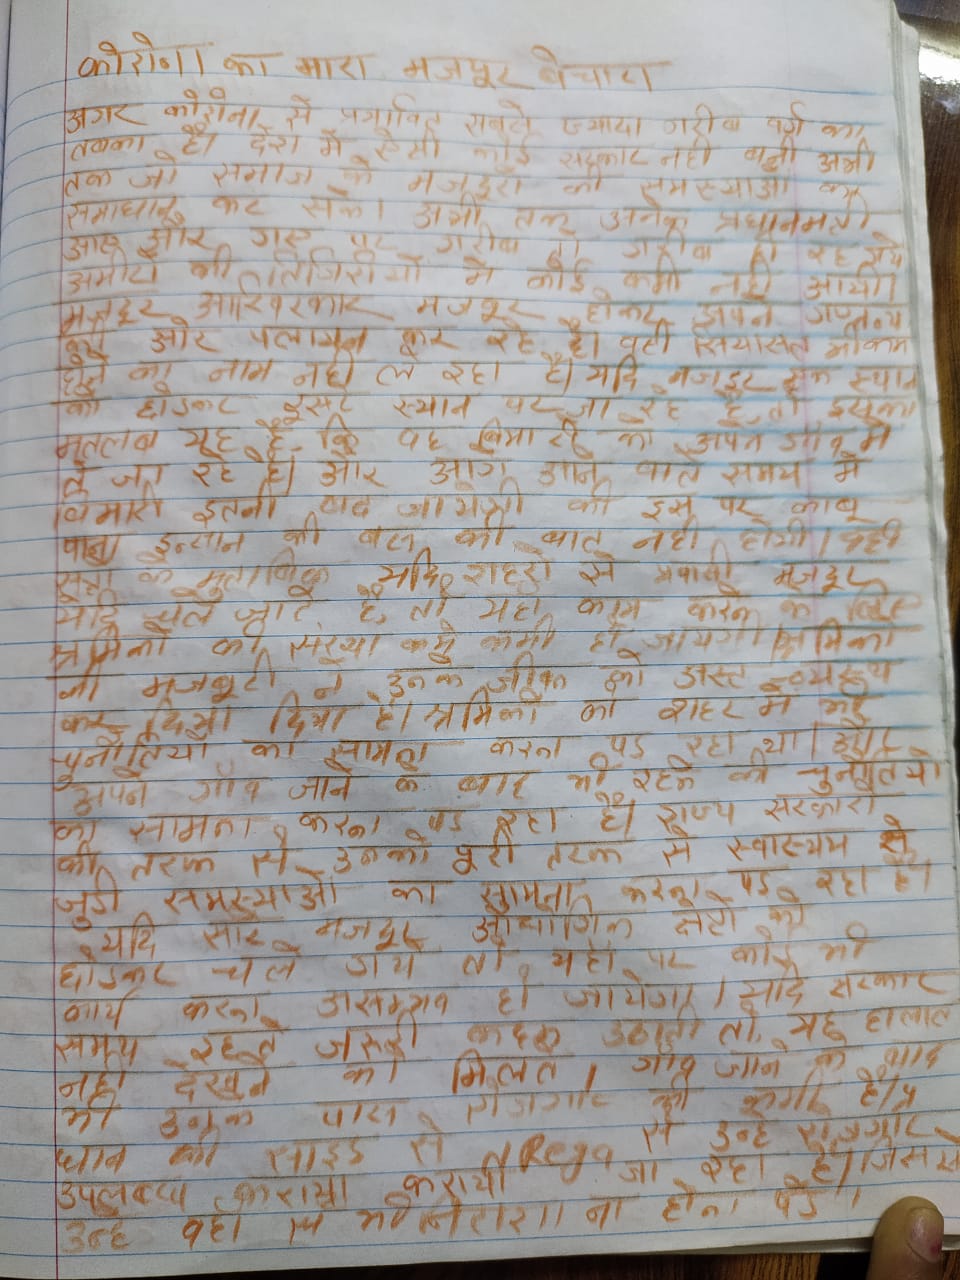 कोरोना का मारा मजदूर बेचारा
अगर कोरोना से प्रभावित सबसे ज्यादा गरीब वर्ग का
तबका है। देश में ऐसी कोई सरकार नही बनी अभी
तक जो समाज के मजदूरो की समस्याओ का
समाधान कर सके। अभी तक अनेक प्रधानमंत्री
आए और गए पर गरीब तो गरीब ही रह गये
अमीरो की तिजोरीयो में कोई कमी नही आयी।
मजदूर आखिरकार मजबूर होकर अपने गन्तव्य
की और पलायन कर रहे है। वही सियासत भी कम
होने का नाम नही ले रहा है। यदि मजदूर एक स्थान
को छोडकर दूसरे स्थान पर जा रहे है, तो इसका
मतलब यह है कि वह बिमारी को अपने गांव में
ले जा रहे है। और आगे आने वाले समय में
बिमारी इतनी बढ जायेगी की इस पर काबू
पाना इन्सान की बस की बात नही होगी। वही
सूत्रो के मुताबिक यदि शहरो से प्रवासी मजदूर
यदि चले जाते है, तो यहा काम करने के लिए
श्रमिको की संख्या कमी हो जायेगी। श्रमिको
की मजबूरी ने उनके जीवन को अस्त व्यस्त
कर दिया दिया है। श्रमिको को शहर में भी
चुनौतियो का सामना करना पड रहा था। और
अपने गाँव जाने के बाद भी रहने की चुनौतियो
का सामना करना पड रहा है। राज्य सरकारो
की तरफ से उनको पूरी तरफ से स्वास्थय से
जुडी समस्याओ का सामना करना पड रहा है।
यदि सारे मजदूर औधोगिक क्षेत्रो को
छोडकर चले जाये तो यहाँ पर कोई भी
कार्य करना असम्भव हो जायेगा। यदि सरकार
समय रहते जरूरी कदम उठाती तो, यह हालात
नही देखने को मिलते। गाँव जाने के बाद
भी उनके पास रोजगार की कमी है। प्र
धान की साइड से Rega से उन्हे रोजगार
उपलब्ध कराया करायी जा रहा है। जिससे
उन्हे वहाँ से ना होना पडे।